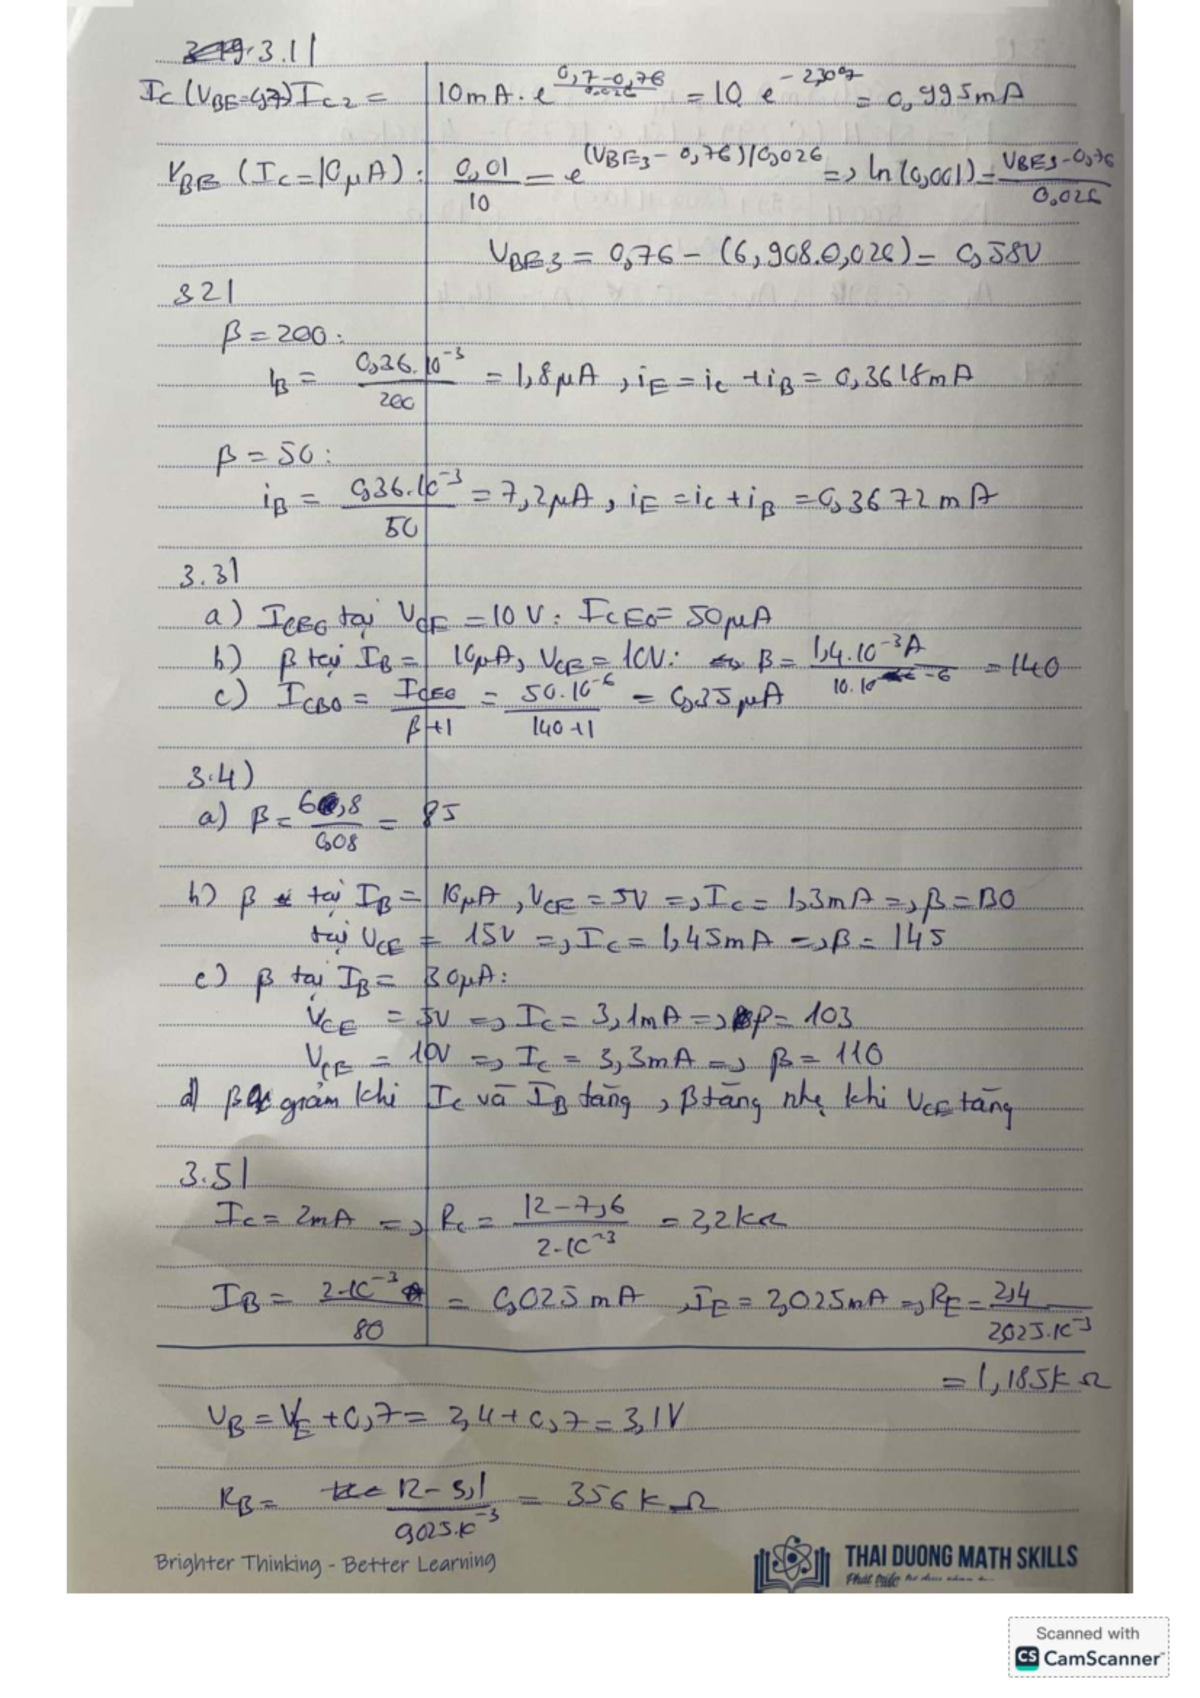 3.1|
Ic (VBE=0,7) Ic2 = 10mA. e^(0,7-0,76)/0,026 = 10 e^-2,307 = 0,995mA
VBE (Ic=10μA): 0,01/10 = e^(VBE3 - 0,76)/0,026 => ln(0,001) = (VBE3-0,76)/0,026
VBE3 = 0,76 - (6,908.0,026) = 0,58V
3 2|
β = 200:
IB = 0,36.10^-3/200 = 1,8μA, iE = ic + iB = 0,3618mA
β = 50:
iB = 0,36.10^-3/50 = 7,2μA, iE = ic + iB = 0,3672mA
3.3|
a) ICEO tại VCE = 10V: ICEO = 50μA
b) β tại IB = 10μA, VCE = 10V: <=> β = 1,4.10^-3A/10.10^-6 = 140
c) ICBO = ICEO/β+1 = 50.10^-6/140+1 = 0,35μA
3.4)
a) β = 6,8/0,08 = 85
b) β tại IB = 10μA, VCE = 5V => Ic = 1,3mA => β = 130
tại VCE = 15V => Ic = 1,45mA => β = 145
c) β tại IB = 30μA:
VCE = 5V => Ic = 3,1mA => β = 103
VCE = 10V => Ic = 3,3mA => β = 110
d) β giảm khi Ic và IB tăng, β tăng nhẹ khi VCE tăng
3.5|
Ic = 2mA => Rc = 12-7,6/2.10^-3 = 2,2kΩ
IB = 2.10^-3/80 = 0,025mA, IE = 2,025mA => RE = 2,4/2,025.10^-3
= 1,185kΩ
VB = VE + 0,7 = 2,4 + 0,7 = 3,1V
RB = 12-3,1/0,025.10^-3 = 356kΩ
Brighter Thinking - Better Learning
THAI DUONG MATH SKILLS
Scanned with
CS CamScanner